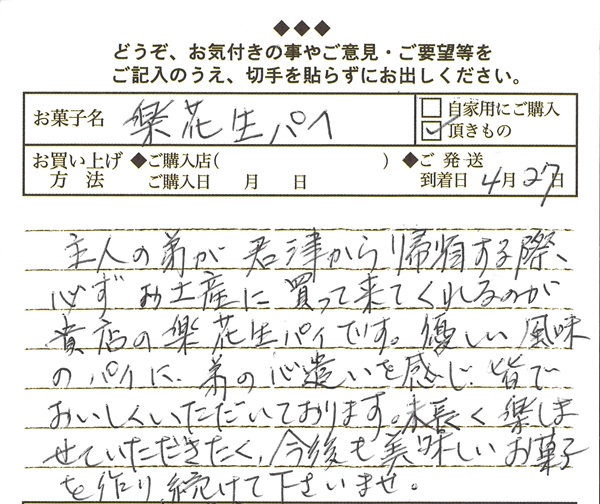 ◆◆◆
どうぞ、お気付きの事やご意見・ご要望等を
ご記入のうえ、切手を貼らずにお出しください。
お菓子名 楽花生パイ □自家用にご購入
☑頂きもの
お買い上げ ◆ご購入店( ) ◆ご発送
方法 ご購入日 月 日 到着日 4月27日
主人の弟が君津から帰省する際、
必ずお土産に買って来てくれるのが
貴店の楽花生パイです。優しい風味
のパイに、弟の心遣いを感じ、皆で
おいしくいただいております。末長く楽しま
せていただきたく、今後も美味しいお菓子
を作り続けて下さいませ。